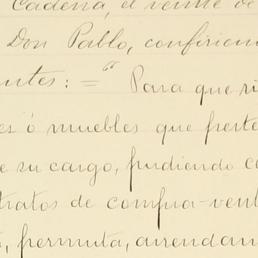 Cadena, el veinte de
Don Pablo, confirien
ntes: = " Para que ri
es ó muebles que perte
e su cargo, pudiendo ce
tratos de compra-vent
, permuta, arrendam